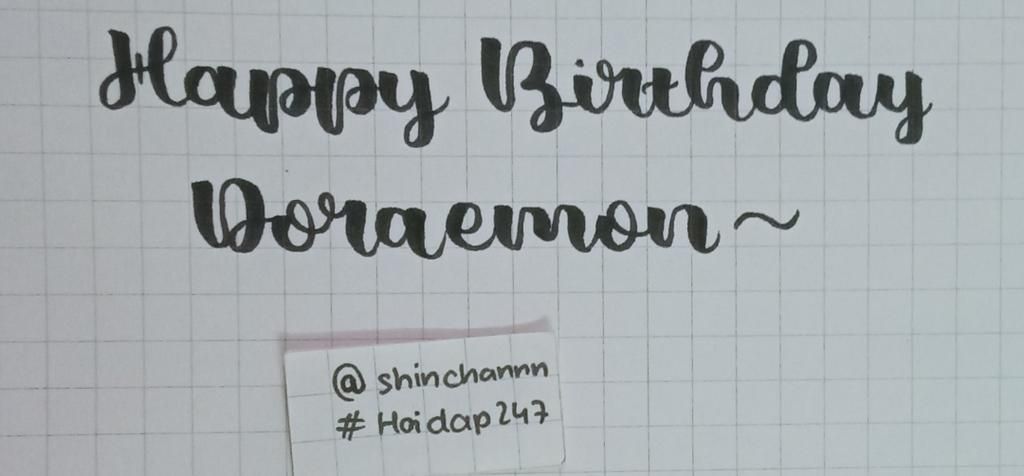 Happy Birthday
Doraemon~
@ shinchannn
# Hoidap247